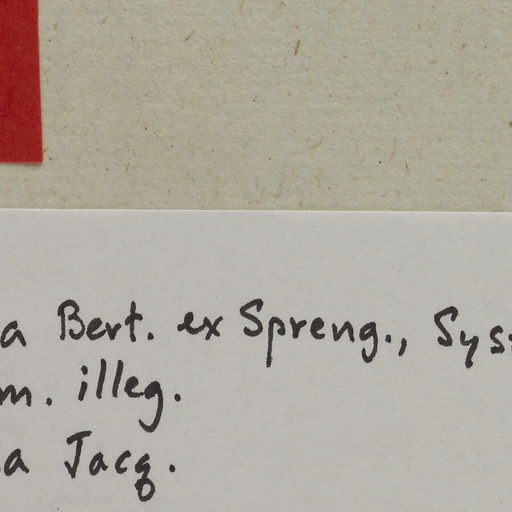 a Bert. ex Spreng., Sys
m. illeg.
a Jacq.